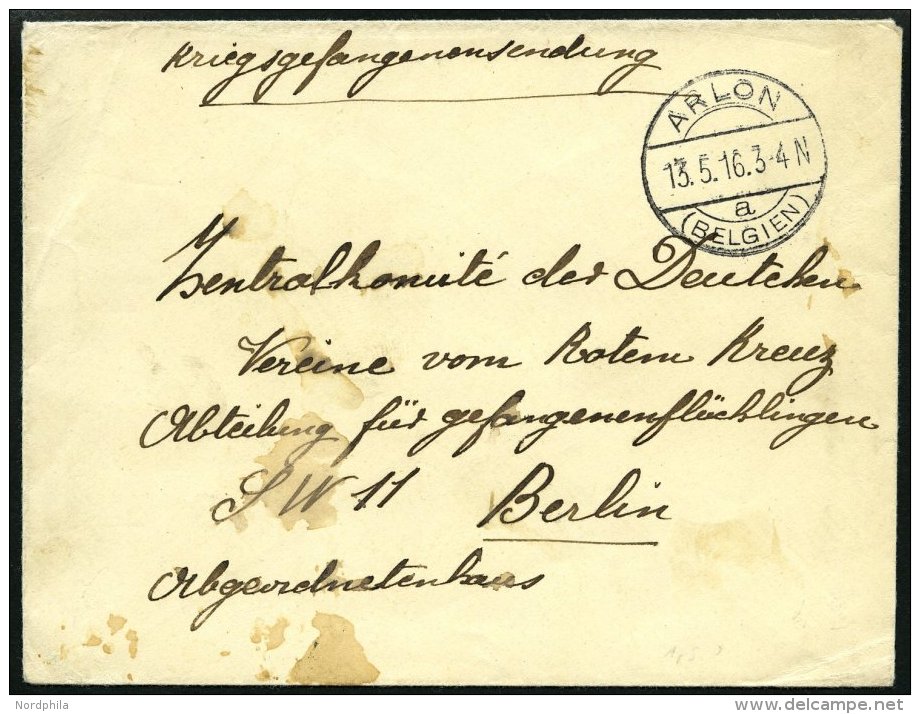 Kriegsgefangenensendung
ARLON
13.5.16.3-4 N
a
(BELGIEN)
Zentralkomité der Deutchen
Vereine vom Rotem Kreuz
Abteilung für gefangenenflüchlingen
SW 11 Berlin
Abgeordnetenhaus
Nordphila
delcampe.net